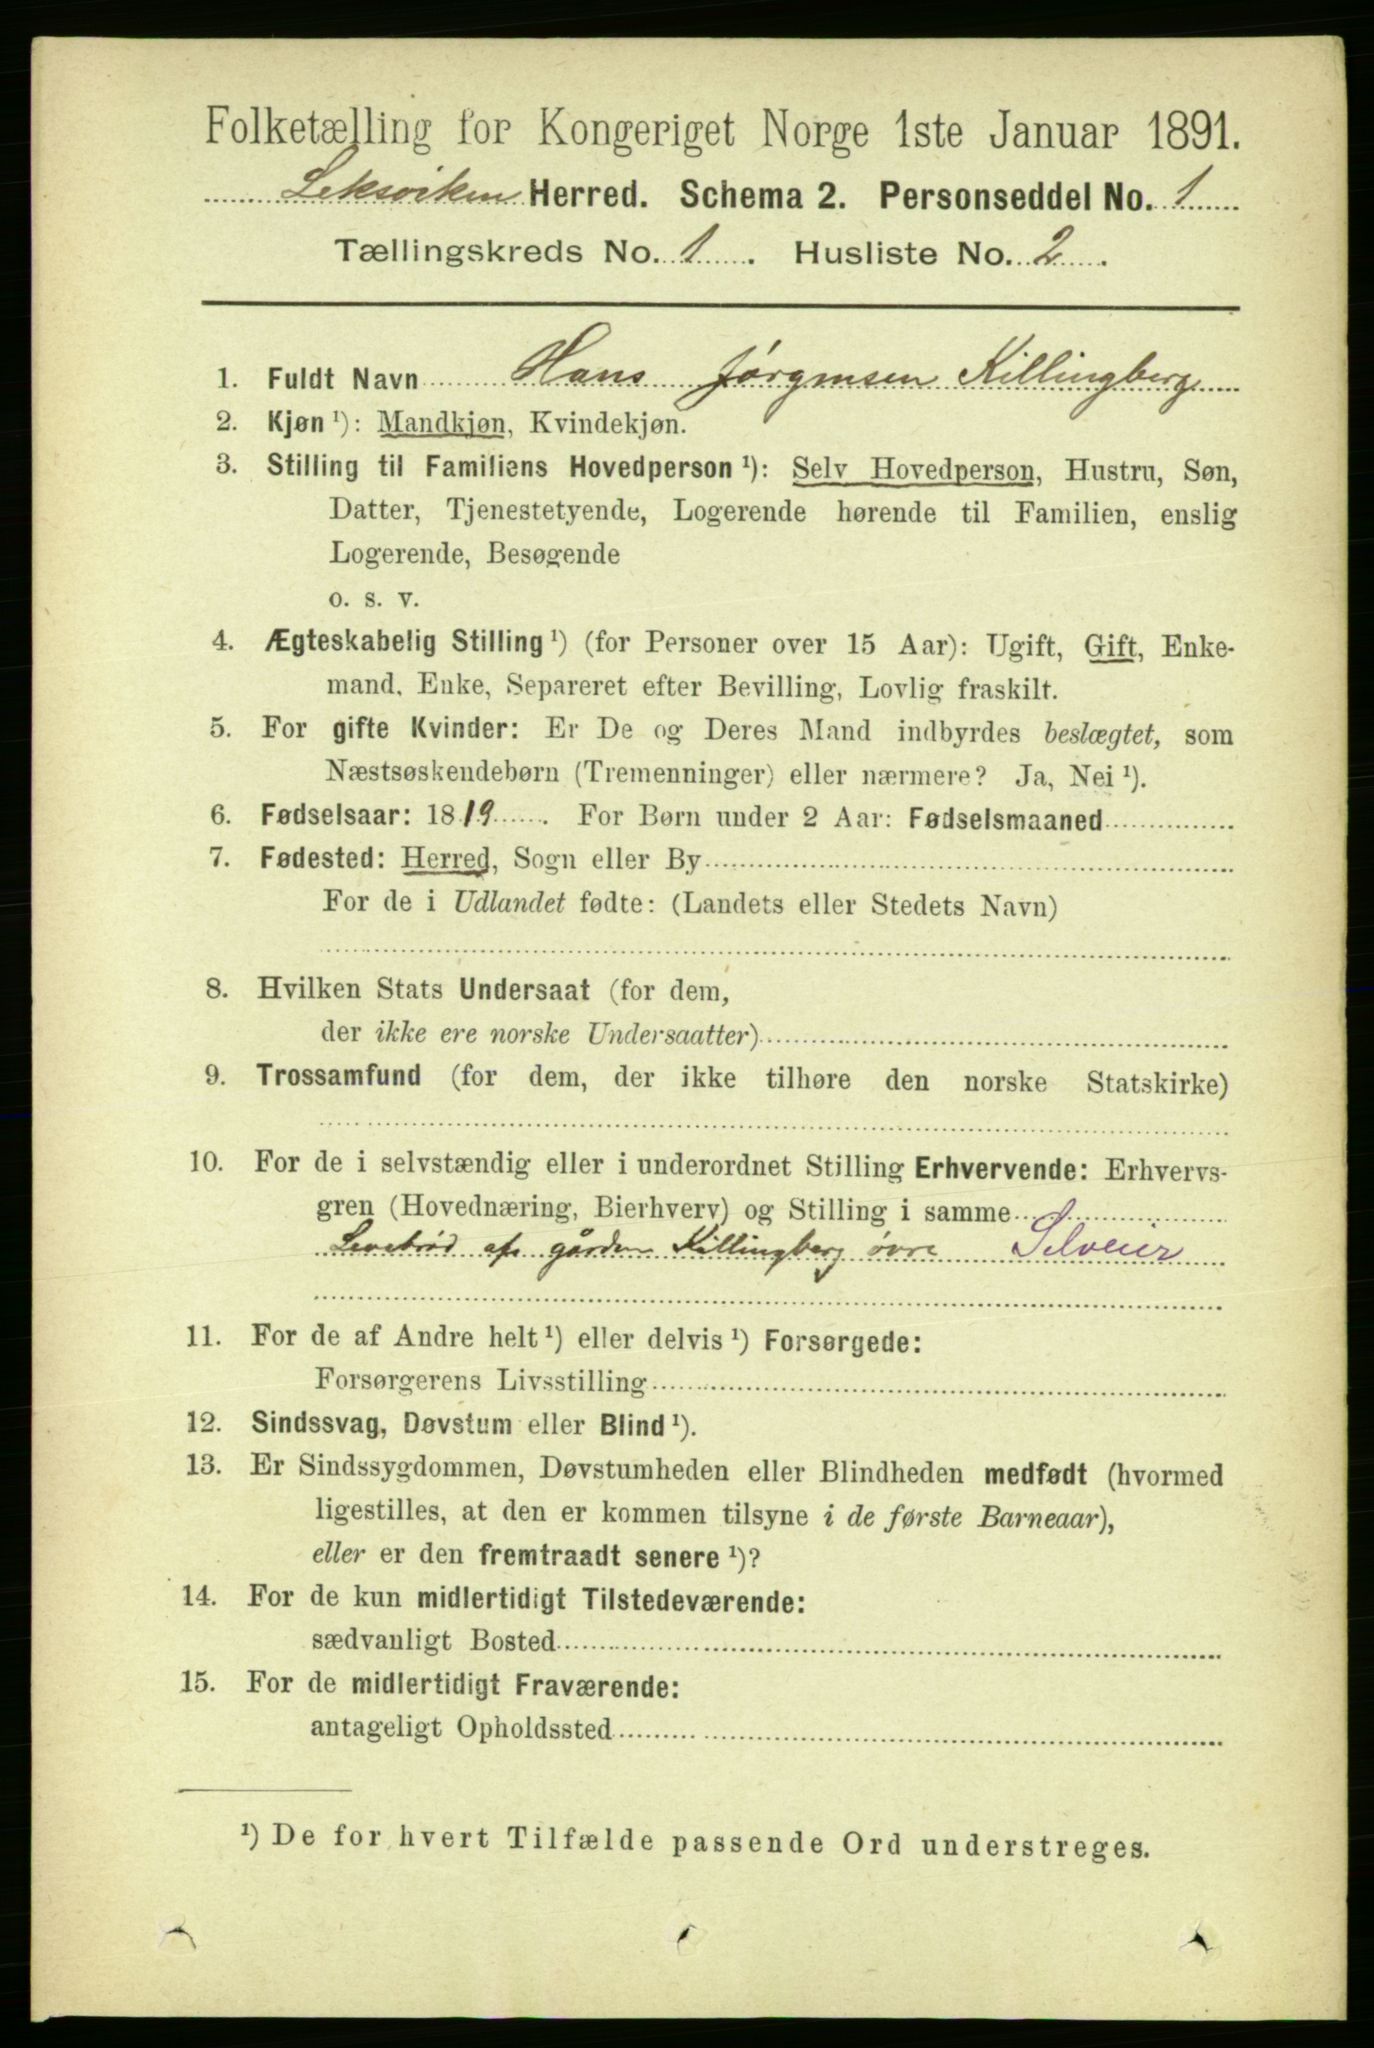 Folketælling for Kongeriget Norge 1ste Januar 1891.
Leksviken Herred. Schema 2. Personseddel No. 1
Tællingskreds No. 1. Husliste No. 2.
1. Fuldt Navn Hans Jørgensen Killingberg
2. Kjøn ¹): Mandkjøn, Kvindekjøn.
3. Stilling til Familiens Hovedperson ¹): Selv Hovedperson, Hustru, Søn,
Datter, Tjenestetyende, Logerende hørende til Familien, enslig
Logerende, Besøgende
o. s. v.
4. Ægteskabelig Stilling ¹) (for Personer over 15 Aar): Ugift, Gift, Enke-
mand, Enke, Separeret efter Bevilling, Lovlig fraskilt.
5. For gifte Kvinder: Er De og Deres Mand indbyrdes beslægtet, som
Næstsøskendebørn (Tremenninger) eller nærmere? Ja, Nei ¹).
6. Fødselsaar: 1819. For Børn under 2 Aar: Fødselsmaaned
7. Fødested: Herred, Sogn eller By
For de i Udlandet fødte: (Landets eller Stedets Navn)
8. Hvilken Stats Undersaat (for dem,
der ikke ere norske Undersaatter)
9. Trossamfund (for dem, der ikke tilhøre den norske Statskirke)
10. For de i selvstændig eller i underordnet Stilling Erhvervende: Erhvervs-
gren (Hovednæring, Bierhverv) og Stilling i samme
Levebrød af gården Killingberg øvre Selveier
11. For de af Andre helt ¹) eller delvis ¹) Forsørgede:
Forsørgerens Livsstilling
12. Sindssvag, Døvstum eller Blind ¹).
13. Er Sindssygdommen, Døvstumheden eller Blindheden medfødt (hvormed
ligestilles, at den er kommen tilsyne i de første Barneaar),
eller er den fremtraadt senere ¹)?
14. For de kun midlertidigt Tilstedeværende:
sædvanligt Bosted
15. For de midlertidigt Fraværende:
antageligt Opholdssted
¹) De for hvert Tilfælde passende Ord understreges.